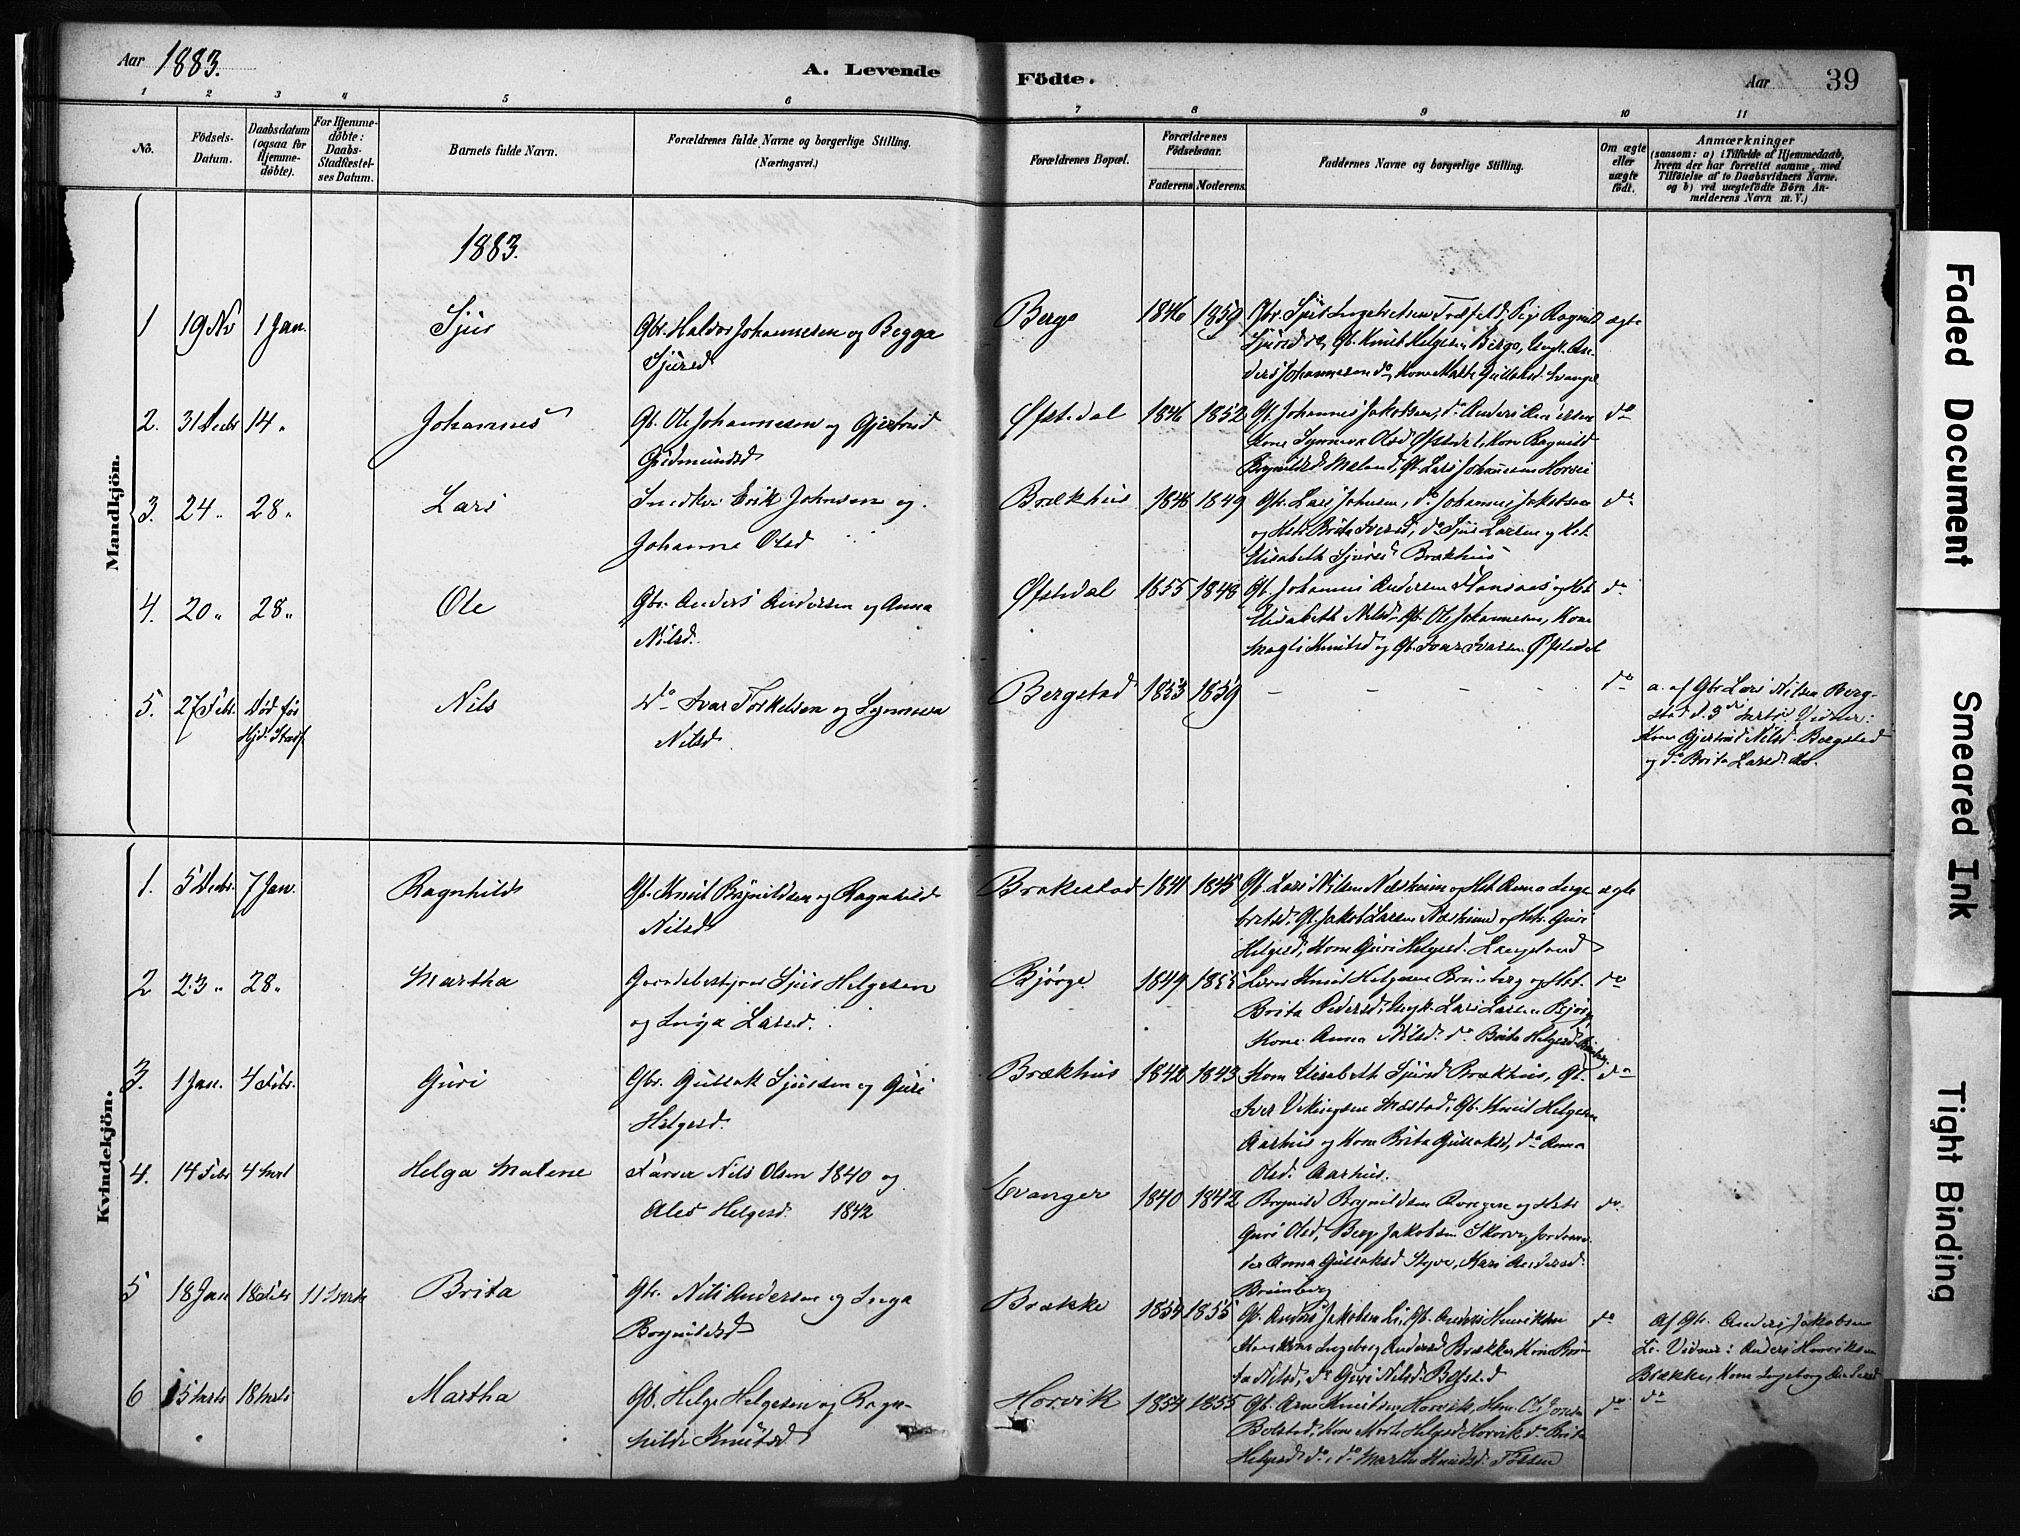 Aar 1883.
A. Levende Födte.
Aar 39
1 2 3 4 5 6 7 8 9 10 11
No.
Födsels-Datum.
Daabsdatum (ogsaa for Hjemmedöbte).
For Hjemmedöbte: Daabs-Stadfæstelses Datum.
Barnets fulde Navn.
Forældrenes fulde Navne og borgerlige Stilling.
(Næringsvei.)
Forældrenes Bopæl.
Forældrenes Födselsaar.
Faderens Moderens
Faddernes Navne og borgerlige Stilling.
Om ægte eller uægte födt.
Anmærkninger
(saasom: a) i Tilfælde af Hjemmedaab,
hvem der har forrettet samme, med
Tilföielse af to Daabsvidners Navne.
og b) ved uægtefödte Börn An-
melderens Navn m. V.)
1883.
Mandkjön.
1 19 Nv 1 Jan. Sjur Gbr. Haldor Johannesen og Begga
Sjursd Bergo 1846 1859 ægte
Sjursd do, Gb. Knut Helgesen Bergo, Ungk. An-
ders Johannesen do, Kone Martha Gullaksd. Evanger
2. 31 Decbr 14 " Johannes Gb. Ole Johannesen og Gjertrud
Gudmundsd Øfstedal 1846 1852 Gb. Johannes Jakobsen, do Anders Andersen do
Kone Synneva Olsd Øfstedal, Kone Ragnild
Brynildsd Mæland, Gb. Lars Johannesen Horvei
3. 24 " 28 " Lars Snedker Erik Johnsen og
Johanne Olsd Brækhus 1846 1849 Gbr. Lars Johnsen, do Johannes Jakobsen do
og Hst. Brita Iversd, do Sjur Larsen og Hst.
Elisabeth Sjursd Brækhus
4. 20 " 28 " Ole Gbr. Anders Andersen og Anna
Nilsd. Øfstedal 1855 1848 Gb. Johannes Andersen og Hst. do
Elisabeth Nilsd. Gb. Ole Johannesen, Kone
Magli Knutsd og Gb. Ivar Ivarsen Øfstedal
5. 27 Febr. Död för Hjd. Stadf. Nils do Ivar Torkelsen og Synneva
Nilsd. Bergstad 1853 1859 - - - - do a. af Gbr. Lars Nilsen Berg-
stad d. 3die Vidner:
Kone Gjertrud Nilsd. Bergstad
og do Brita Larsd. do.
Kvindekjön.
1. 5 Decbr. 7 Jan. Ragnhild Gb. Knut Brynildsen og Ragnhild
Nilsd Brakestad 1841 1845 Gb. Lars Nilsen Næsheim og Hst. Anna Inge- ægte
britsd. Gb. Jakob Larsen Næsheim og Hst. Guri
Helgesd, Kone Guri Helgesd. Langeland
2 23 " 28 " Martha Gaardbestyrer Sjur Helgesen
og Inga Larsd. Bjørge 1849 1855 Knut Helgesen og Hst. do
Brita Pedersd, Ungk. Lars Larsen Bjørge
Kone Anna Nilsd. do Brita Helgesd
3. 1 Jan. 4 Febr. Guri Gbr. Gullak Sjursen og Guri
Helgesd. Brækhus 1842 1843 Kone Elisabeth Sjursd Brækhus, Gb. do
Iver Vikingsen Mæstad, Gb. Knut Helgesen
Aarhus og Kone Brita Gullaksd, do Anna
Olsd. Aarhus.
4. 14 Febr 4 Mrt Helga Malene Farver Nils Olsen 1840 og
Ales Helgesd. 1842 Evanger 1840 1842 Brynild Brynildsen og Hst. do
Guri Olsd, Berge Jakobsen Skorve, Jordemo-
der Anna Gullaksd Styve, Kari Andersd.
5 18 Jan 18 Febr 11 Marts Brita Gbr. Nils Andersen og Inga
Brynildsd Brække 1854 1855 Gb. Anders Jakobsen Li, Gb. Anders Henriksen do Af Gbr. Anders Jakobsen
Ingeborg Andersd Brække, Kone Bri- Li. Vidner: Anders Henriksen
ta Nilsd, do Guri Nilsd Brække, Kone Ingeborg Andersd
do
6 5 Marts 18 Marts Martha Gb. Helge Helgesen og Ragn-
hilde Knutsd Horvik 1854 1855 Gb. Arne Knutsen Horvik, do
Bolstad, Kone Marta Helgesd Horvik do Brita
Helgesd do, do Martha Knudsd.
Faded Document
Smeared Ink
Tight Binding